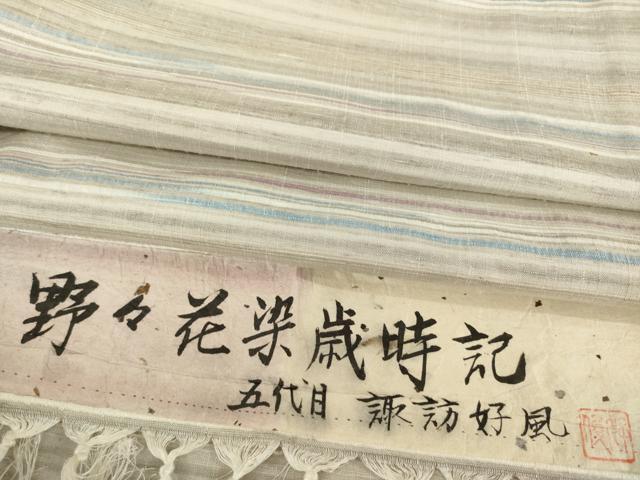 野々花染歳時記
五代目 諏訪好風